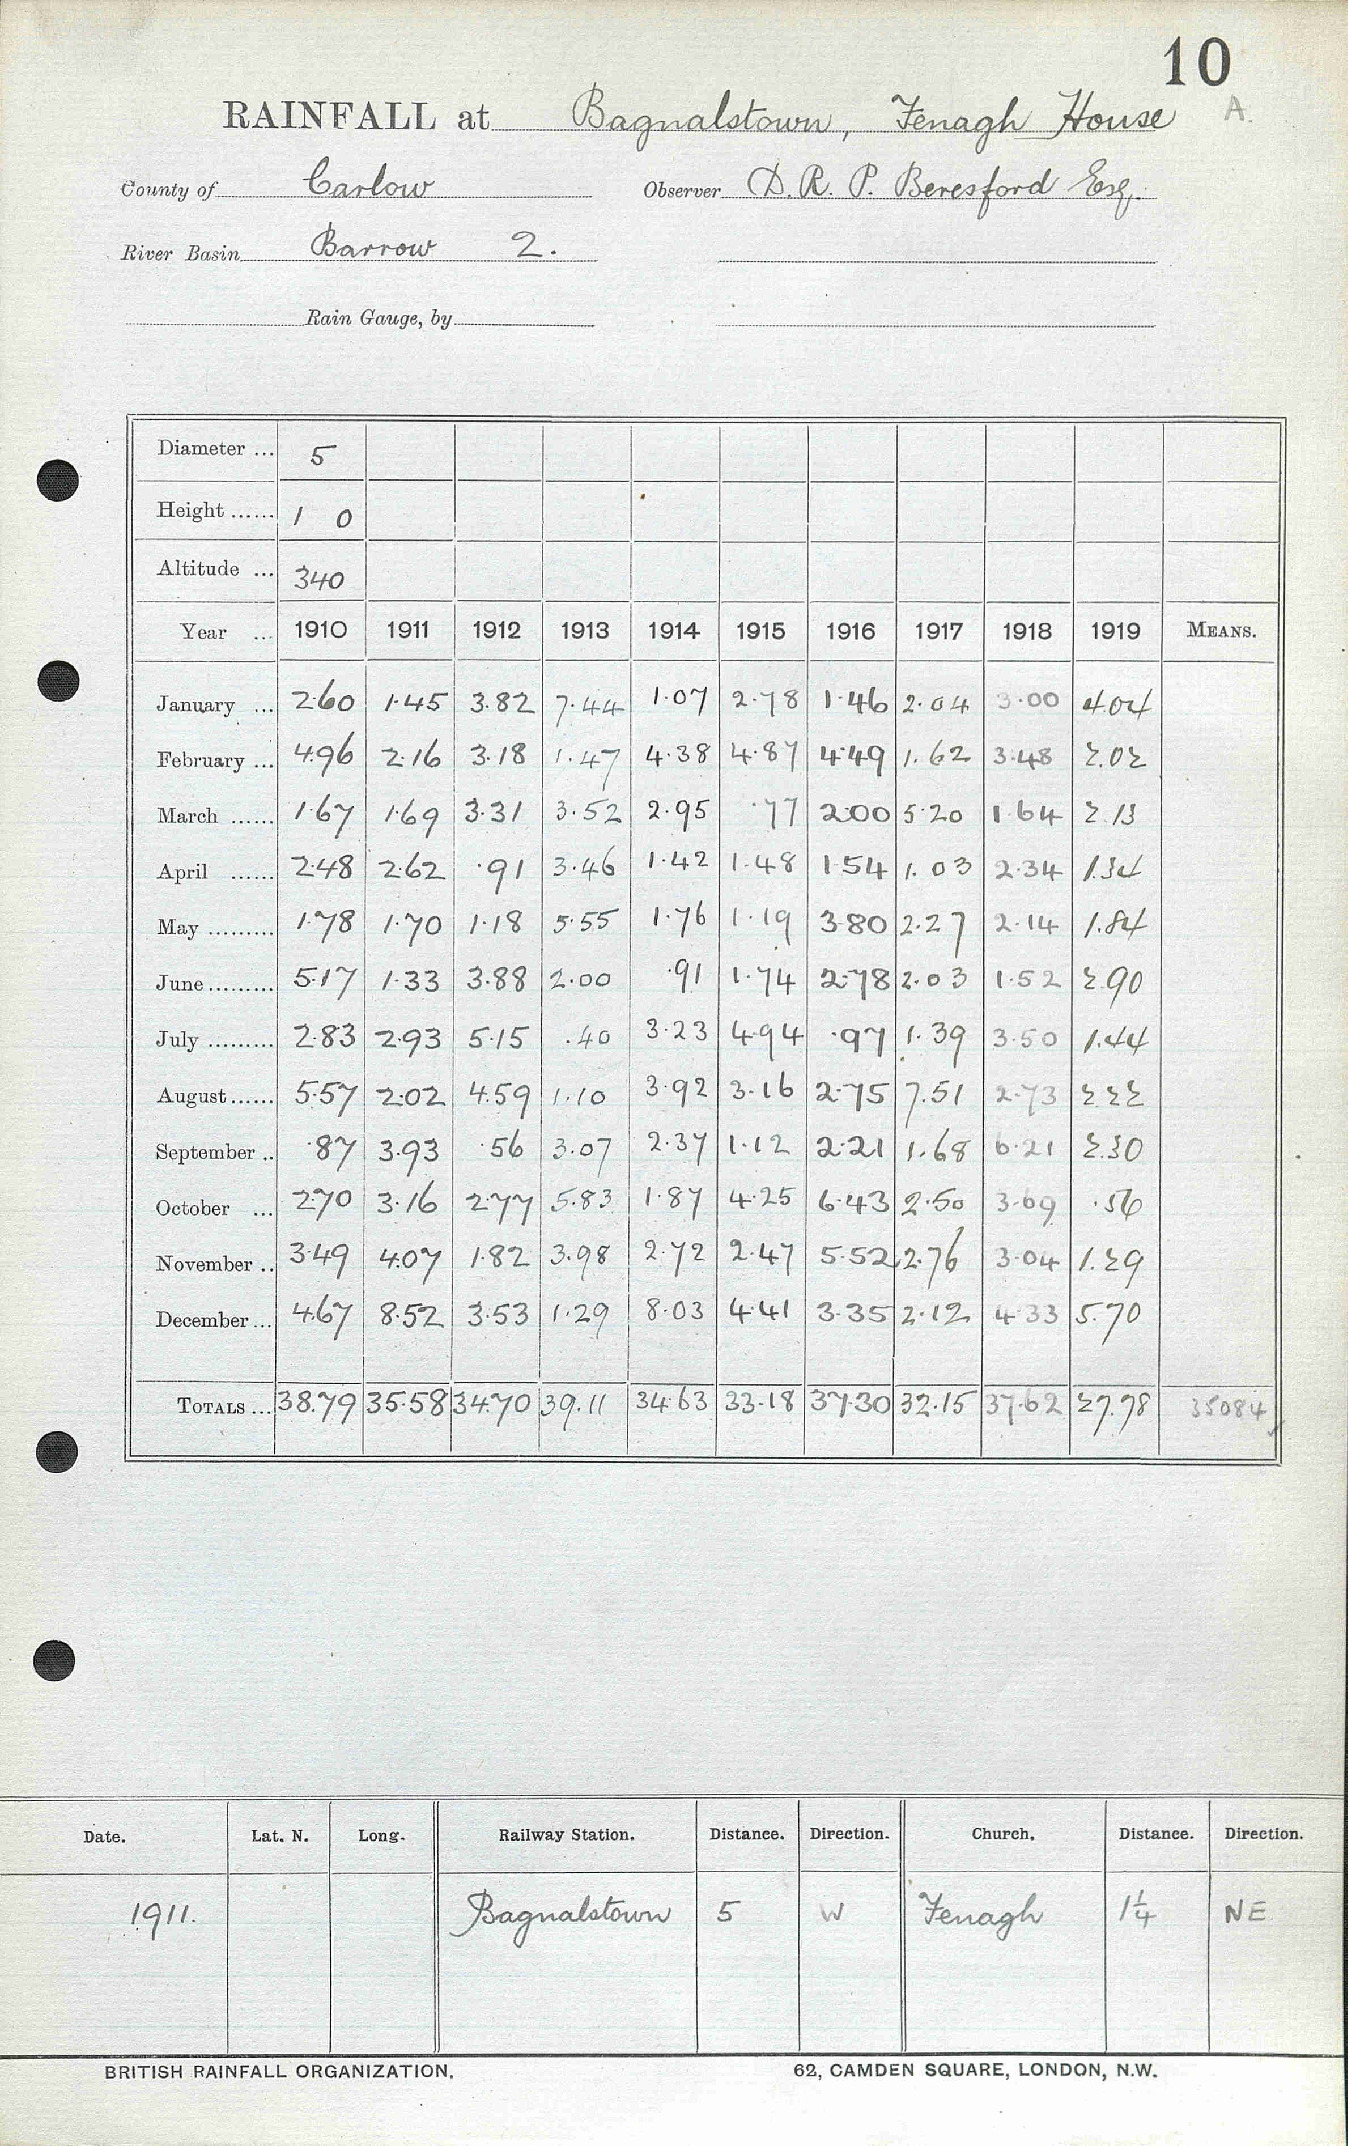 10
RAINFALL at Bagnalstown, Fenagh House A.
County of Carlow Observer D. R. P. Beresford Esq.
River Basin Barrow 2.
Rain Gauge, by
Diameter ... 5
Height ...... 1 0
Altitude ... 340
Year ... 1910 1911 1912 1913 1914 1915 1916 1917 1918 1919 MEANS.
January ... 2.60 1.45 3.82 7.44 1.07 2.78 1.46 2.04 3.00 4.04
February ... 4.96 2.16 3.18 1.47 4.38 4.87 4.49 1.62 3.48 2.02
March ...... 1.67 1.69 3.31 3.52 2.95 .77 2.00 5.20 1.64 2.13
April ...... 2.48 2.62 .91 3.46 1.42 1.48 1.54 1.03 2.34 1.34
May ......... 1.78 1.70 1.18 5.55 1.76 1.19 3.80 2.27 2.14 1.84
June ......... 5.17 1.33 3.88 2.00 .91 1.74 2.78 2.03 1.52 2.90
July ......... 2.83 2.93 5.15 .40 3.23 4.94 .97 1.39 3.50 1.44
August ...... 5.57 2.02 4.59 1.10 3.92 3.16 2.75 7.51 2.73 2.22
September .. .87 3.93 .56 3.07 2.37 1.12 2.21 1.68 6.21 2.30
October ... 2.70 3.16 2.77 5.83 1.87 4.25 6.43 2.50 3.69 .56
November .. 3.49 4.07 1.82 3.98 2.72 2.47 5.52 2.76 3.04 1.29
December ... 4.67 8.52 3.53 1.29 8.03 4.41 3.35 2.12 4.33 5.70
TOTALS ... 38.79 35.58 34.70 39.11 34.63 33.18 37.30 32.15 37.62 27.78 35084
Date. Lat. N. Long. Railway Station. Distance. Direction. Church. Distance. Direction.
1911. Bagnalstown 5 W Fenagh 1¼ NE
BRITISH RAINFALL ORGANIZATION. 62, CAMDEN SQUARE, LONDON, N.W.